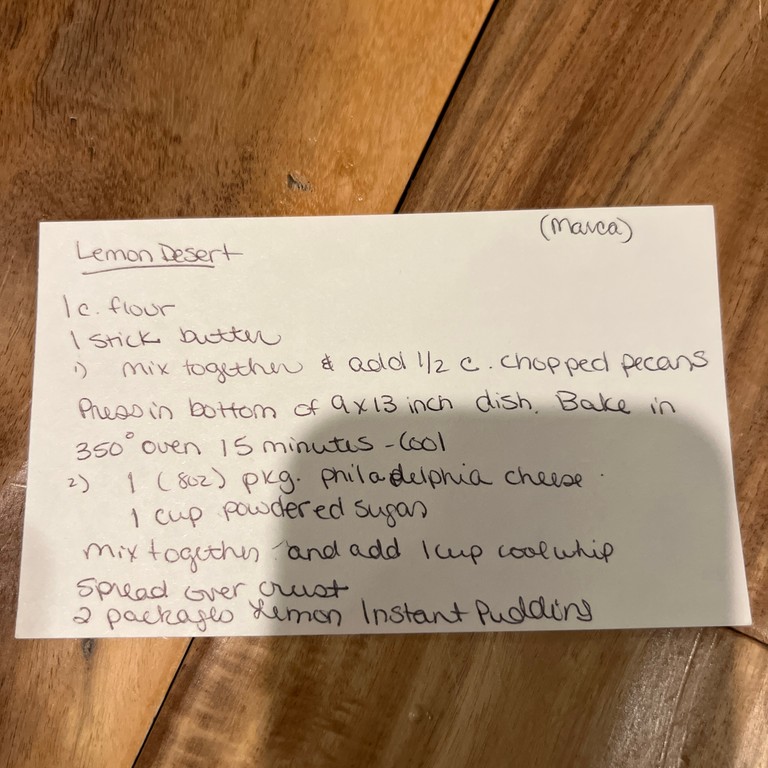 (Marca)
Lemon Desert
1 c. flour
1 stick butter
1) mix together & add 1/2 c. chopped pecans
Press in bottom of 9x13 inch dish. Bake in
350° oven 15 minutes - Cool
2) 1 (8oz) pkg. philadelphia cheese
1 cup powdered sugar
mix together and add 1 cup coolwhip
Spread over crust
2 packages Lemon Instant Pudding